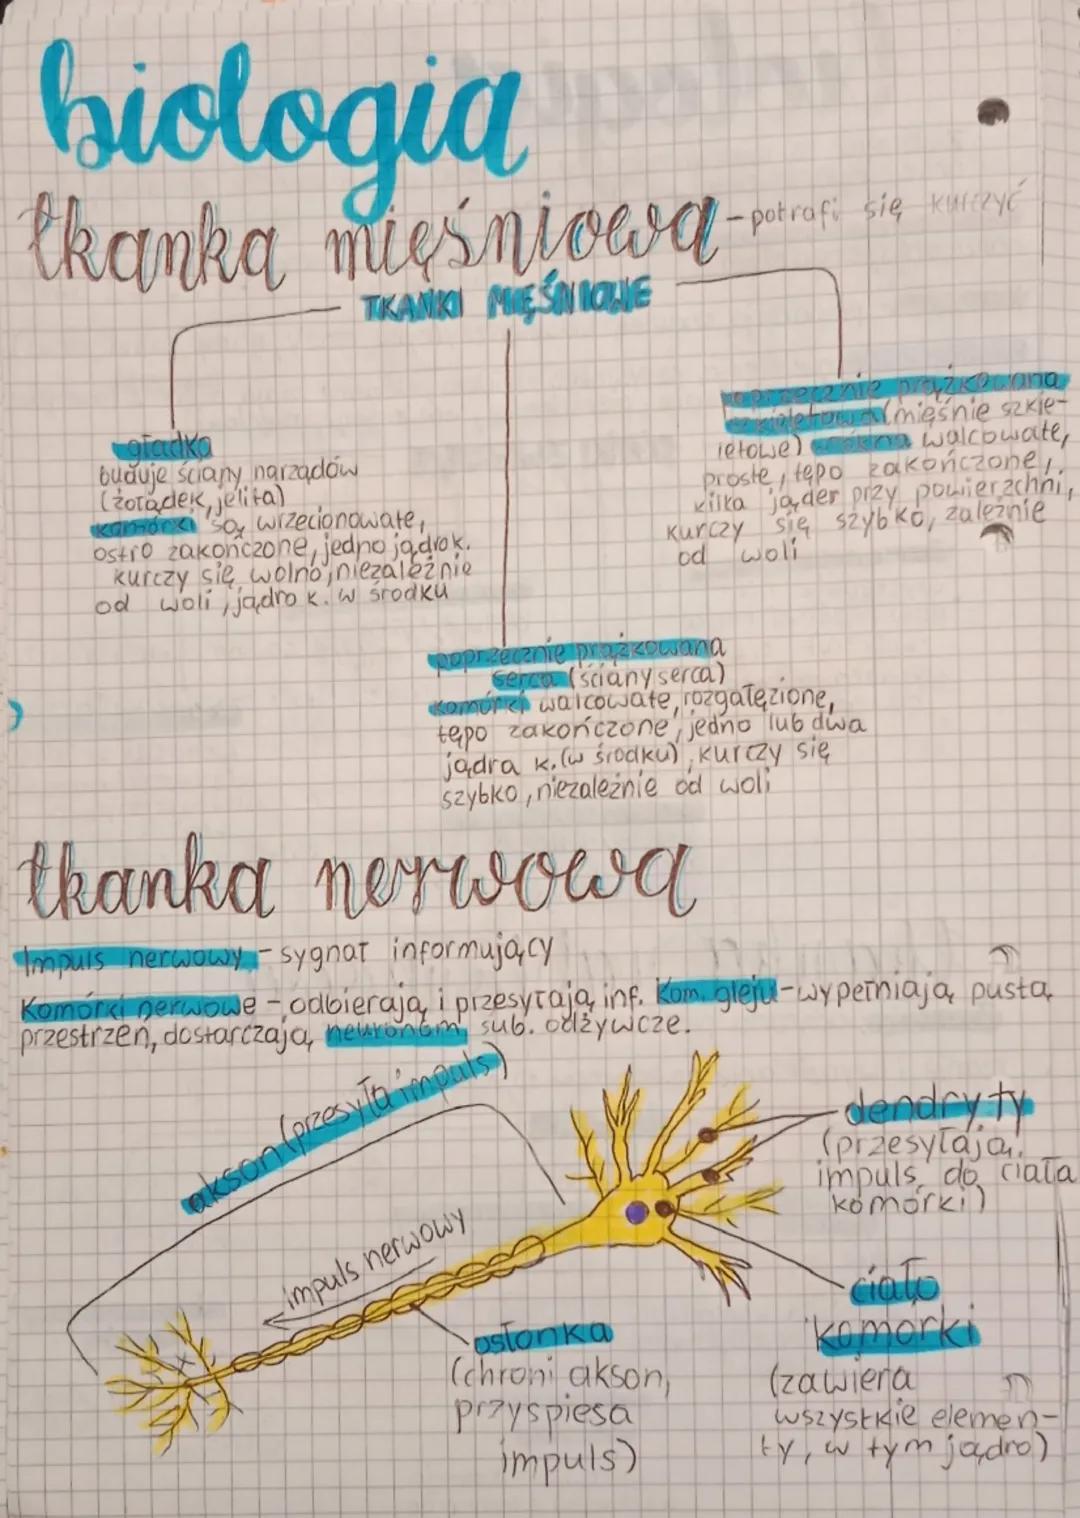 biologia
tkanka mięśniowa - potrafi się kurczyć
TKANKI MIĘŚNIOWE
gładka
buduje ściany narządów
(żołądek, jelita)
komórki są wrzecionowate,
ostro zakończone, jedno jądro k.
kurczy się wolno, niezależnie
od woli, jądro k. w środku
poprzecznie prążkowana
szkieletowa (mięśnie szkie-
letowe) włókna walcowate,
proste, tępo zakończone,
kilka jąder przy powierzchni,
kurczy się szybko, zależnie
od woli
poprzecznie prążkowana
serca (ściany serca)
komórki walcowate, rozgałęzione,
tępo zakończone, jedno lub dwa
jądra k. (w środku), kurczy się
szybko, niezależnie od woli
tkanka nerwowa
Impuls nerwowy - sygnał informujący
Komórki nerwowe - odbierają i przesyłają inf. Kom. gleju - wypełniają pustą
przestrzeń, dostarczają neuronom sub. odżywcze.
akson (przesyła impuls)
impuls nerwowy
dendryty
(przesyłają
impuls do ciała
komórki)
ciało
komórki
(zawiera
wszystkie elemen-
ty, w tym jądro)
osłonka
(chroni akson,
przyspiesa
impuls)